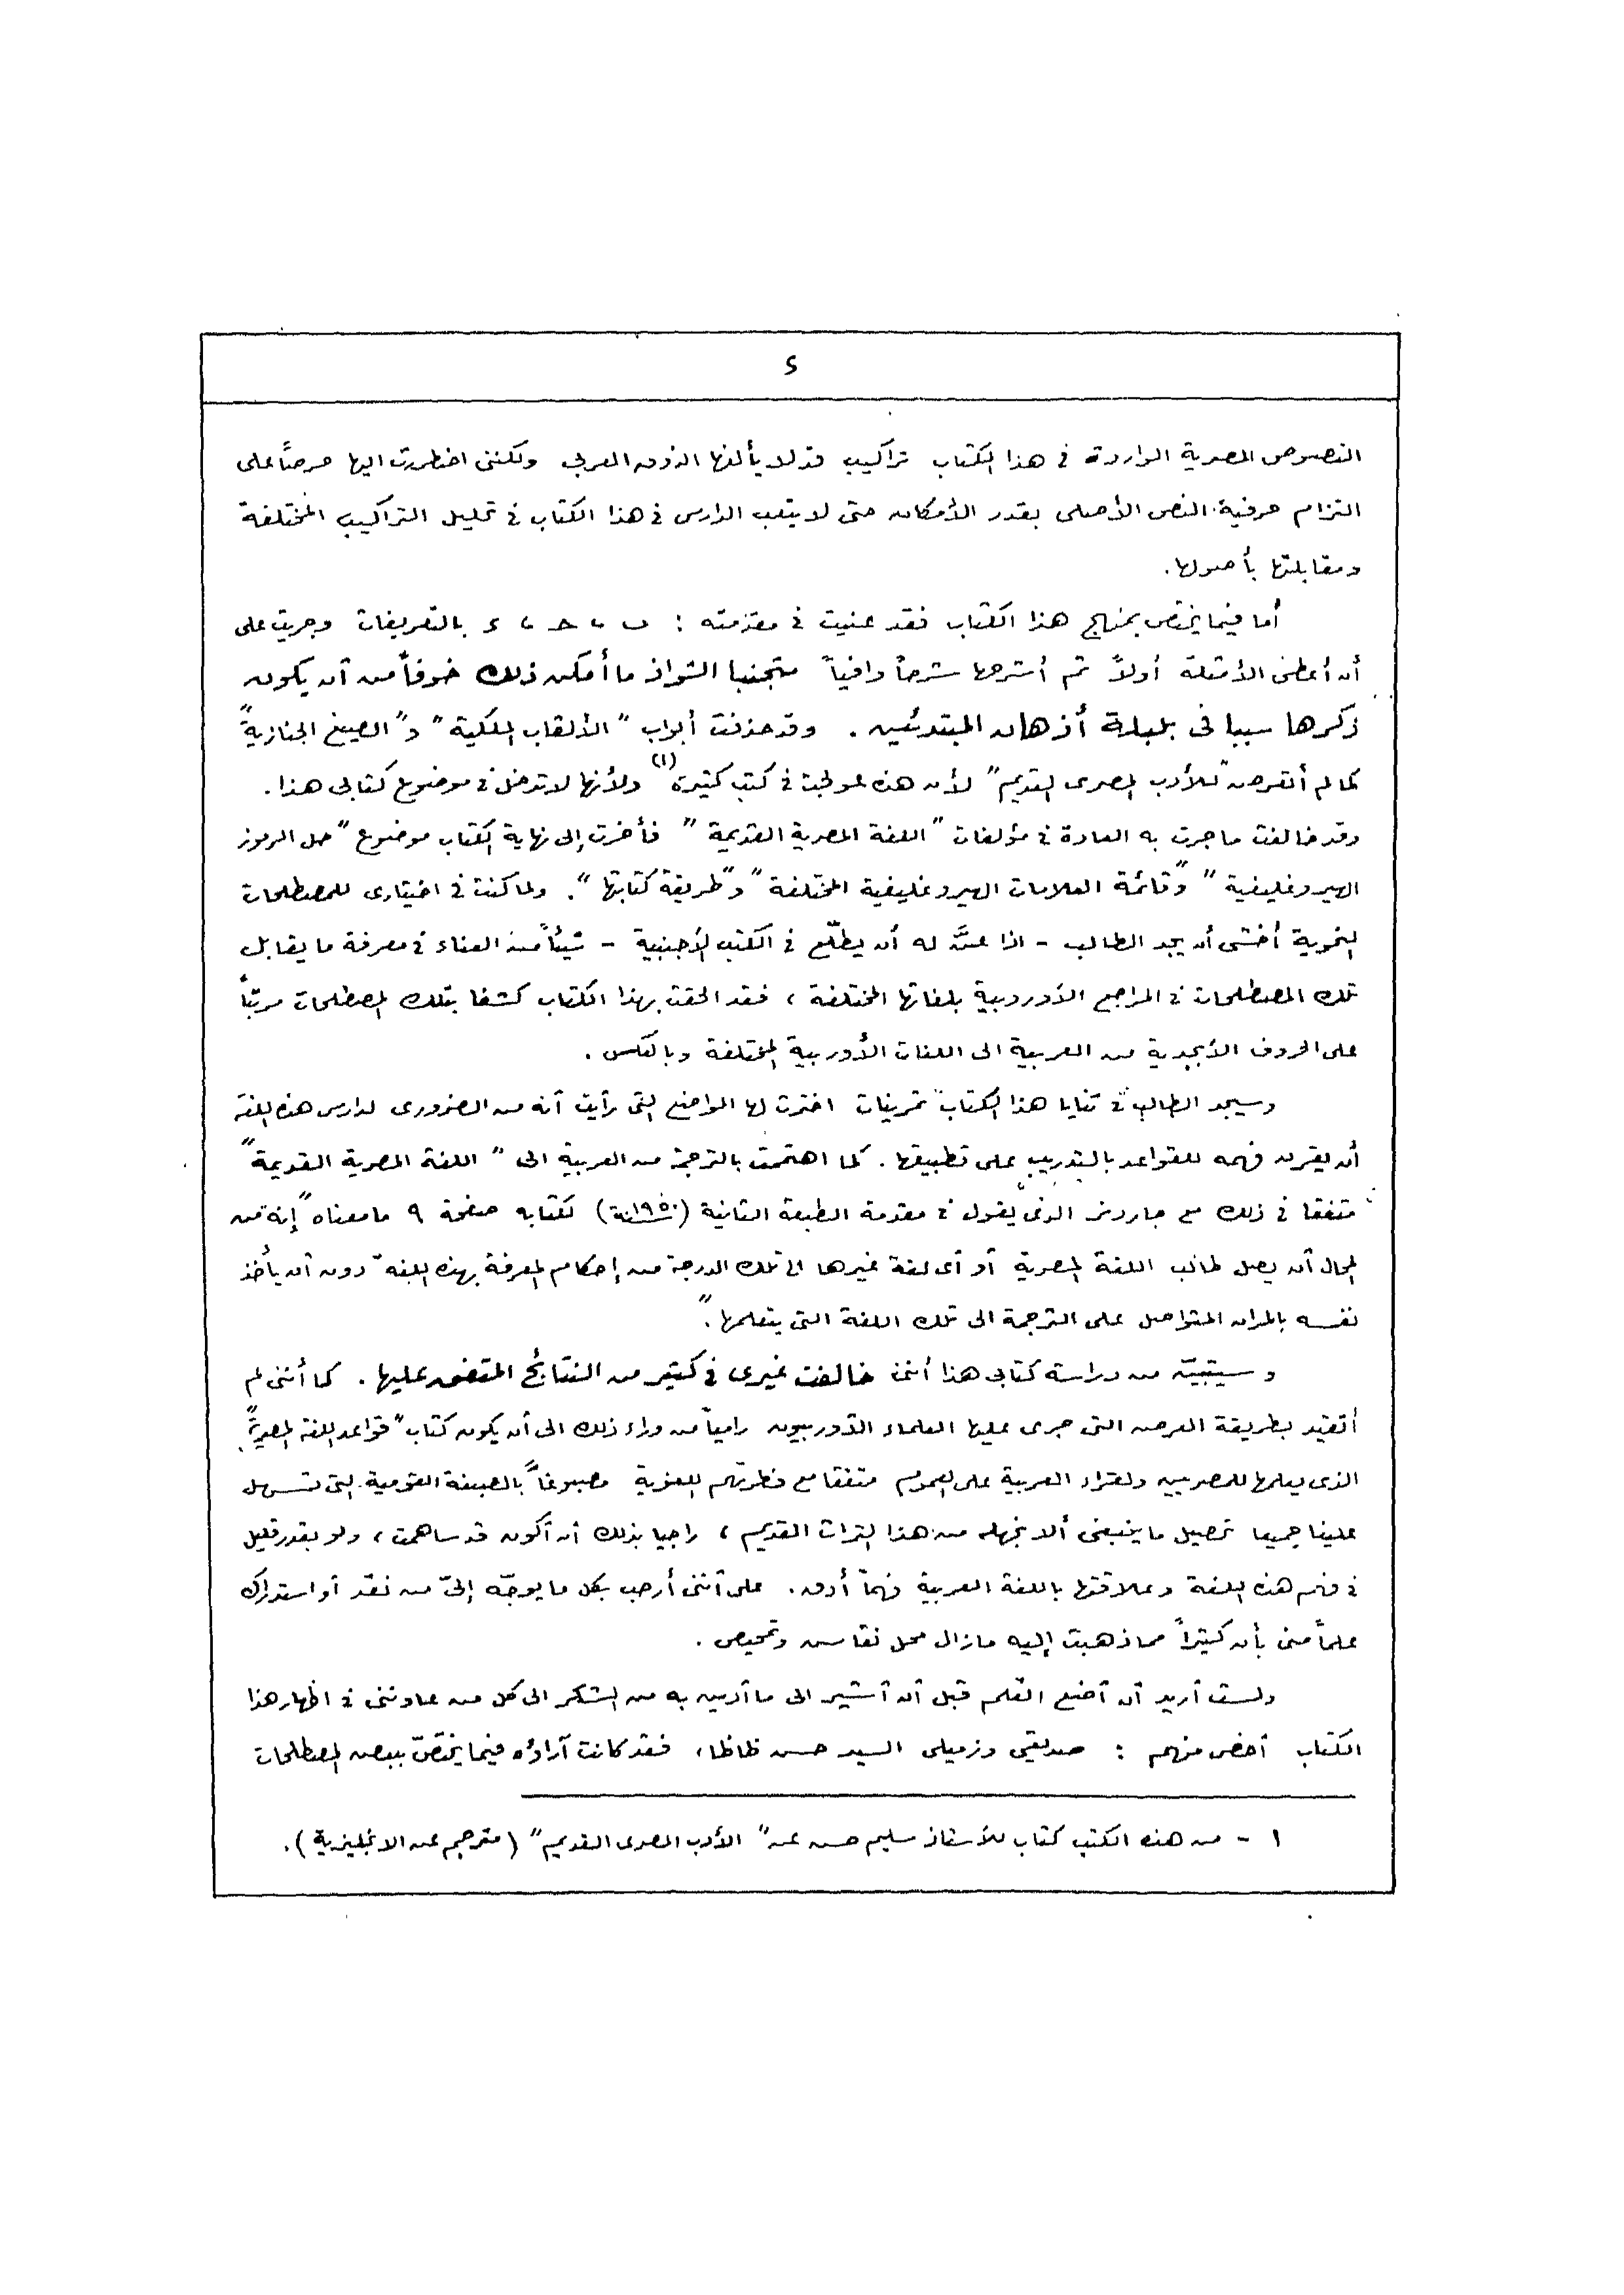 ٤
النصوص المصرية الواردة فى هذا الكتاب تراكيب قد لا يألفها الذوق العربى ولكننى اضطررت اليها حرصاً على
التزام حرفية النص الأصلى بقدر الأمكان حتى لا يتعب الدارس فى هذا الكتاب فى تحليل التراكيب المختلفة
ومقابلتها بأصولها.
أما فيما يختص بمنهج هذا الكتاب فقد عنيت فى مقدمته : ب ، ح ، ء بالتعريفات وجريت على
أن أعطى الأمثلة أولاً ثم أشرحها شرحاً وافياً متجنبا الشواذ ما أمكن ذلك خوفاً من أن يكون
ذكرها سببا فى بلبلة أذهان المبتدئين . وقد حذفت أبواب " الألقاب الملكية " و " الصيغ الجنازية "
كما لم أتعرض " للأدب المصرى القديم " لأن هذه عولجت فى كتب كثيرة (١) ولأنها لا تدخل فى موضوع كتابى هذا .
وقد خالفت ما جرت به العادة فى مؤلفات " اللغة المصرية القديمة " فأخرت إلى نهاية الكتاب موضوع " حل الرموز
الهيروغليفية " و " قائمة العلامات الهيروغليفية المختلفة " و " طريقة كتابتها ". ولما كنت فى اختيارى للمصطلحات
النحوية أخشى أن يجد الطالب - اذا عنَّ له أن يطلّع فى الكتب الأجنبية - شيئاً من العناء فى معرفة ما يقابل
تلك المصطلحات فى المراجع الأوروبية بلغاتها المختلفة ، فقد الحقت بهذا الكتاب كشفا بتلك المصطلحات مرتباً
على الحروف الأبجدية من العربية الى اللغات الأوربية المختلفة وبالعكس .
وسيجد الطالب فى ثنايا هذا الكتاب تمرينات اخترت لها المواضع التى رأيت أنه من الضرورى لدارس هذه اللغة
أن يقرن فهمه للقواعد بالتدريب على تطبيقها . كما اهتممت بالترجمة من العربية الى " اللغة المصرية القديمة "
متفقا فى ذلك مع جاردنر الذى يقول فى مقدمة الطبعة الثانية (سنة ١٩٥٠) لكتابه صفحة ٩ ما معناه " إنه من
المحال أن يصل طالب اللغة المصرية أو أى لغة غيرها الى تلك الدرجة من إحكام المعرفة بهذه اللغة دون أن يأخذ
نفسه بالمران المتواصل على الترجمة الى تلك اللغة التى يتعلمها ".
وسيتبيّن من دراسة كتابى هذا أننى خالفت غيرى فى كثير من النتائج المتفق عليها . كما أننى لم
أتقيد بطريقة العرض التى جرى عليها العلماء الأوربيون رامياً من وراء ذلك الى أن يكون كتاب " قواعد اللغة المصرية "
الذى يعلمها للمصريين ولقراء العربية على العموم متفقا مع فطرتهم اللغوية مصبوغاً بالصبغة القومية التى تسهل
علينا جميعا تحصيل ما ينبغى ألا نجهله من هذا التراث القديم ، راجيا بذلك أن أكون قد ساهمت ، ولو بقدر قليل
فى فهم هذه اللغة وعلاقتها باللغة العربية فهماً أدق . على أننى أرحب بكل ما يوجّه إلىّ من نقد أو استدراك
علماً منى بأن كثيراً مما ذهبت إليه مازال محل نقاش وتمحيص .
ولست أريد أن أضع القلم قبل أن أشير الى ما أدين به من الشكر الى كل من عاوننى فى اظهار هذا
الكتاب أخص منهم : صديقى وزميلى السيد حسن ظاظا ، فقد كانت آراؤه فيما يختصّ ببعض المصطلحات
١ - من هذه الكتب كتاب للأستاذ سليم حسن عن " الأدب المصرى القديم " ( مترجم عن الانجليزية ) .